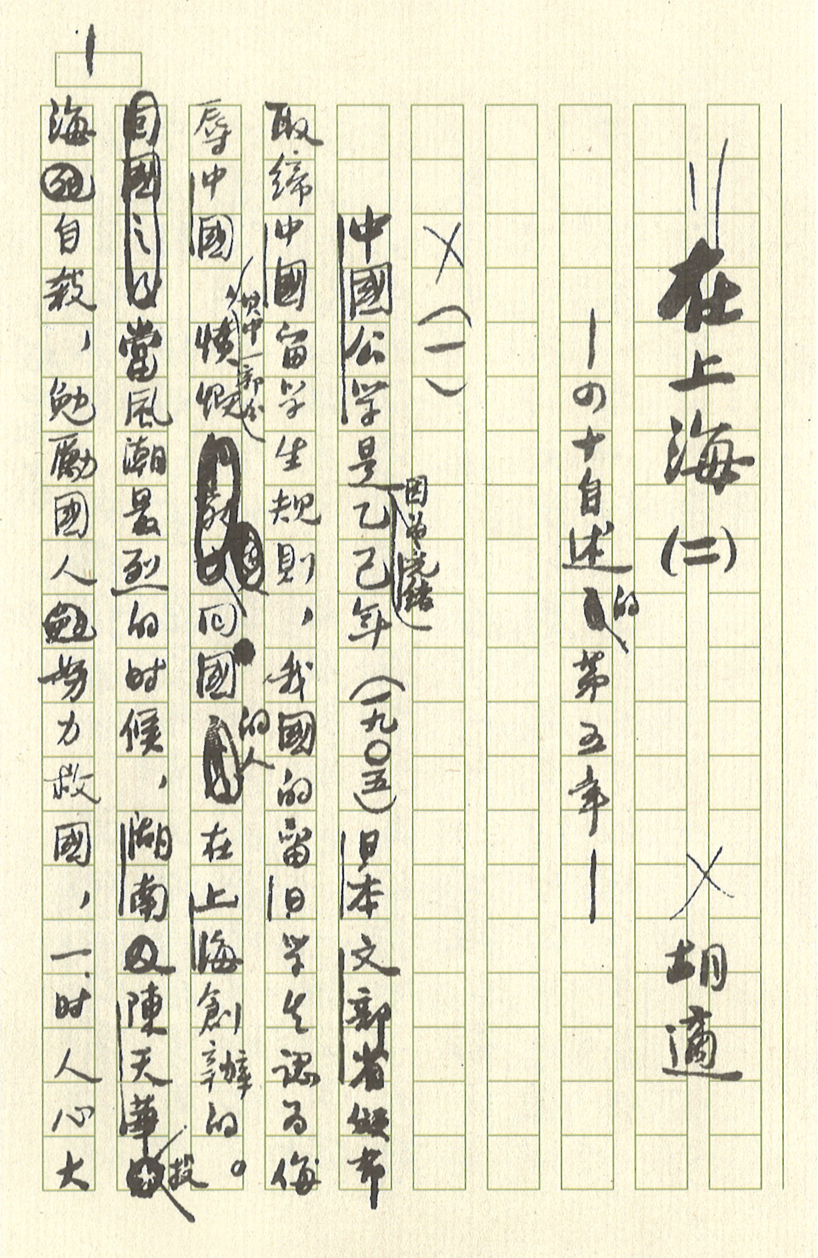 1
在上海(二) 胡適
—四十自述的第五章—
(一)
中國公学是因为光緒乙巳年(一九〇五)日本文部省頒布
取締中國留学生規則，我國的留日学生認为侮
辱中國，其中一部分憤慨回國的人在上海創辦的。
當風潮最烈的时候，湖南陳天華投
海自殺，勉勵國人努力救國，一时人心大